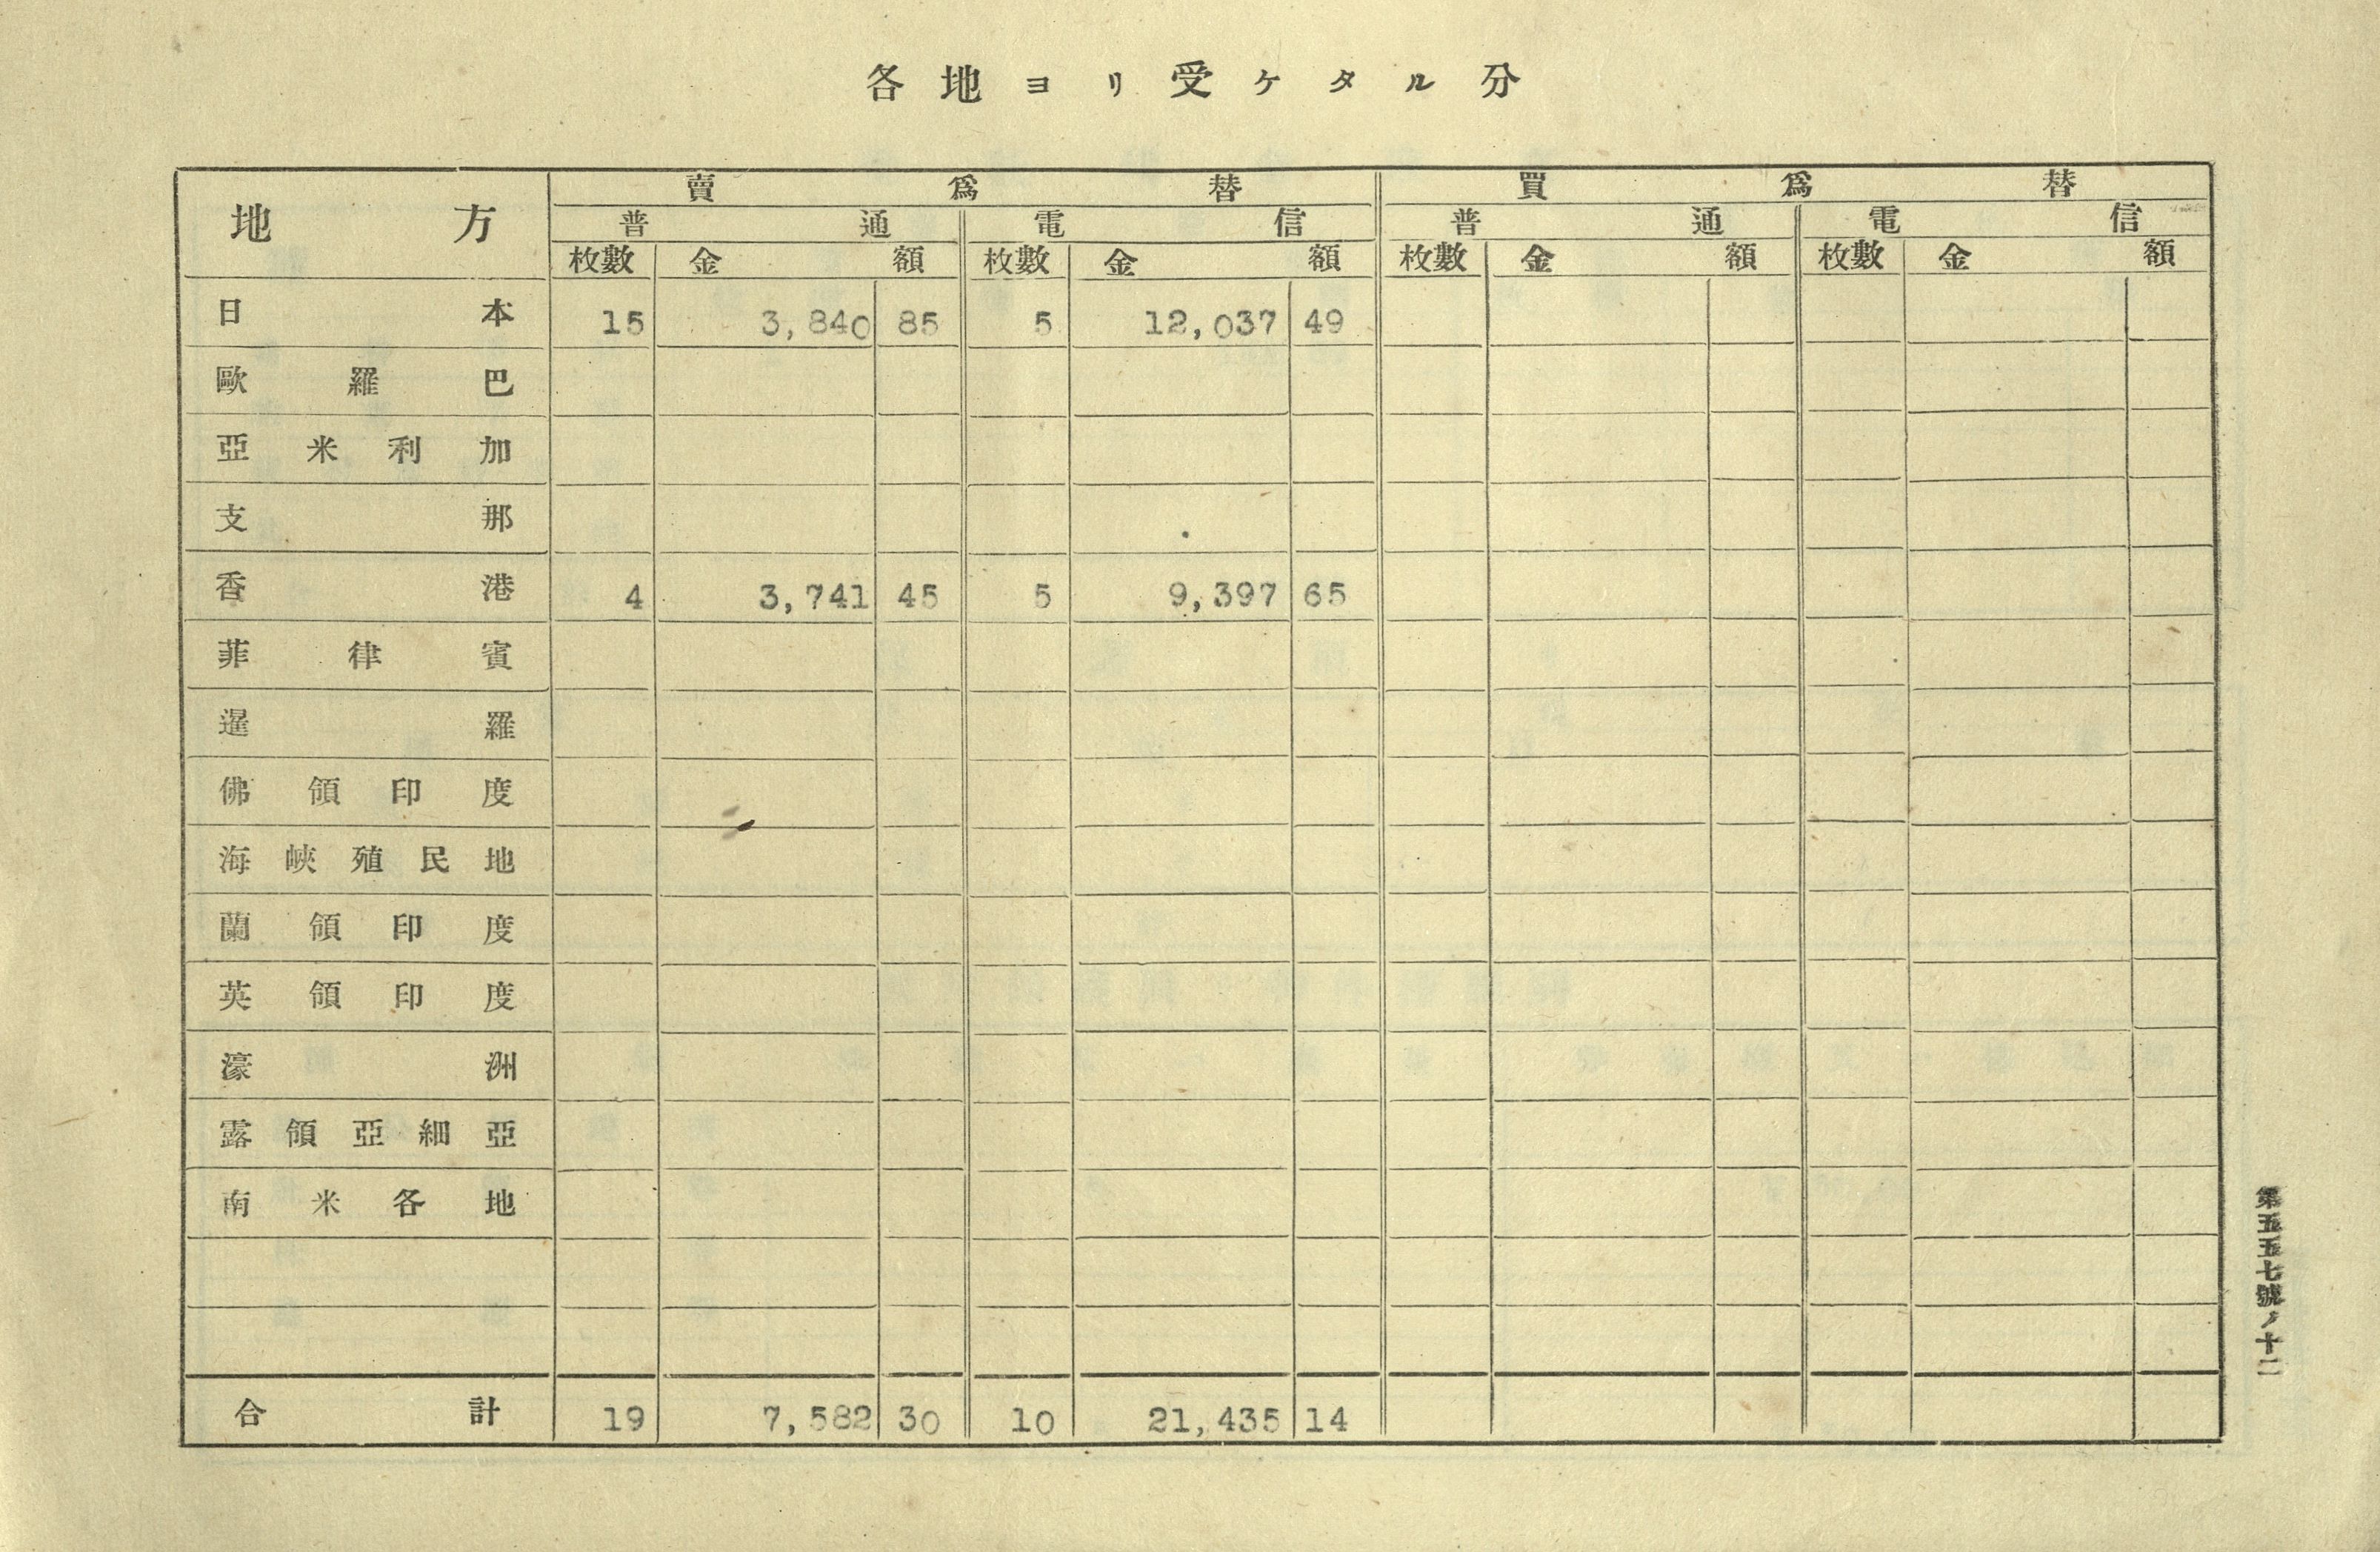 各地ヨリ受ケタル分
地方 賣爲替 買爲替
普通 電信 普通 電信
枚數 金額 枚數 金額 枚數 金額 枚數 金額
日本 15 3,840 85 5 12,037 49
歐羅巴
亞米利加
支那
香港 4 3,741 45 5 9,397 65
菲律賓
暹羅
佛領印度
海峽殖民地
蘭領印度
英領印度
濠洲
露領亞細亞
南米各地
合計 19 7,582 30 10 21,435 14
第五五七號ノ十二